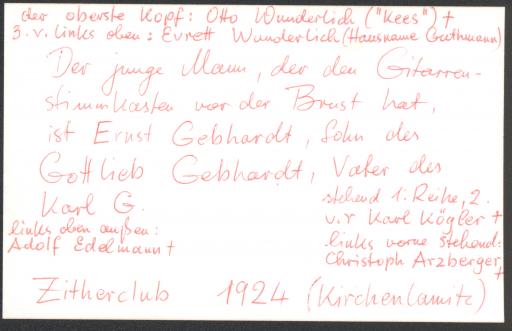 der oberste Kopf: Otto Wunderlich ("Kees") +
3. v. links oben: Evrett Wunderlich (Hausname Guthmann)
Der junge Mann, der den Gitarren-
stimmkasten vor der Brust hat,
ist Ernst Gebhardt, Sohn des
Gottlieb Gebhardt, Vater des
Karl G.
links oben außen:
Adolf Edelmann +
stehend 1. Reihe, 2.
v. r Karl Kögler +
links vorne stehend:
Christoph Arzberger +
Zitherclub 1924 (Kirchenlamitz)